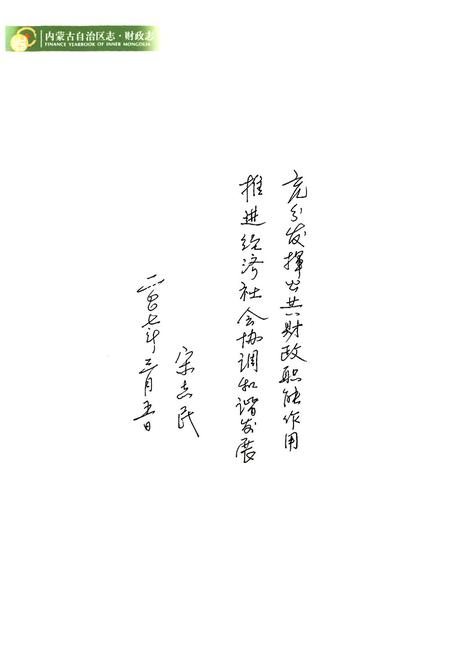 内蒙古自治区志·财政志
FINANCE YEARBOOK OF INNER MONGOLIA
充分发挥公共财政职能作用
推进经济社会协调和谐发展
宋志民
二〇〇七年三月五日